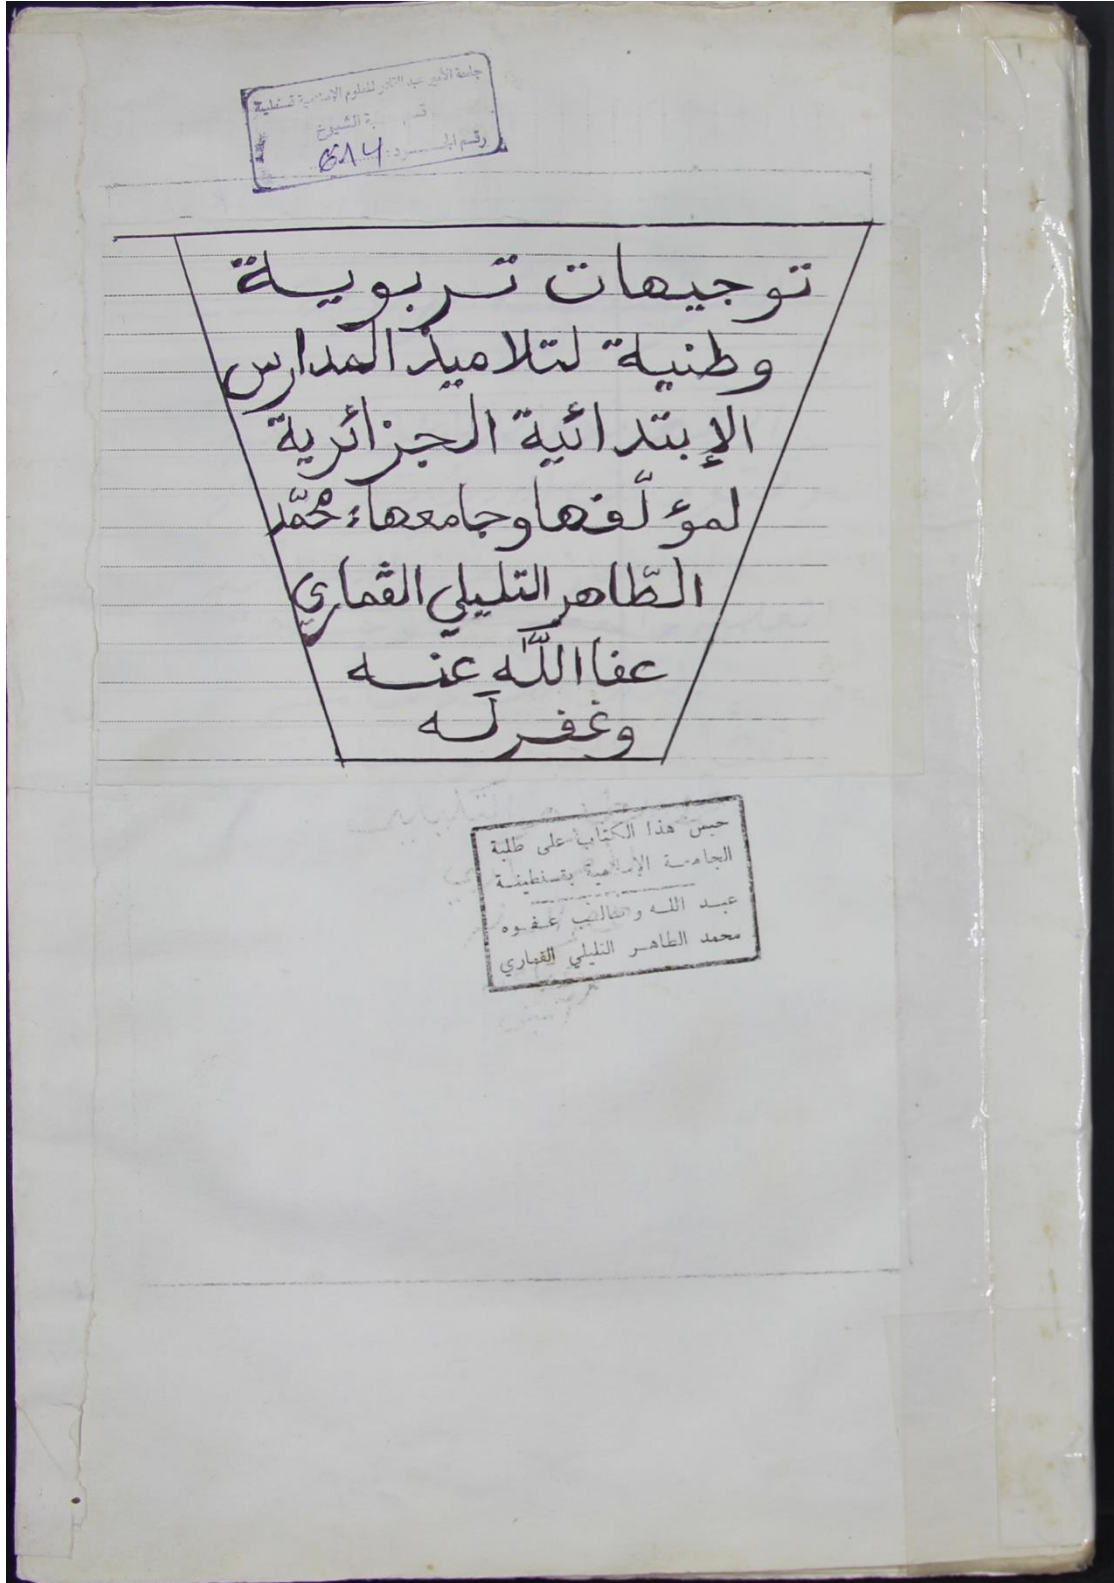 جامعة الأمير عبد القادر للعلوم الإسلامية قسنطينة
الشيوخ
رقم الجـــرد:
توجيهات تربوية
وطنية لتلاميذ المدارس
الإبتدائية الجزائرية
لمؤلّفها وجامعها ء محمّد
الطّاهر التليلي الڤماري
عفا اللّه عنه
وغفر له
حبس هذا الكتاب على طلبة
الجامعـة الإسلامية بقسنطينـة
عبـد اللـه وطالـب عـفـوه
محمد الطاهـر التليلي القماري